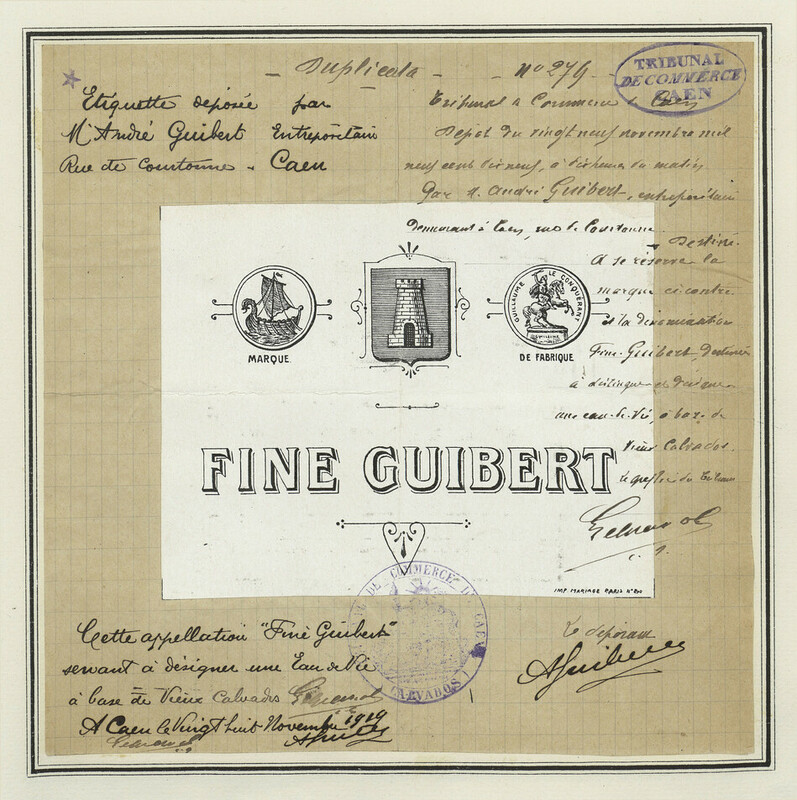 Duplicata
No 279
TRIBUNAL
DE COMMERCE
CAEN
Etiquette déposée par
Mr André Guibert Entrepositaire
Rue de Courtonne - Caen
Tribunal de Commerce de Caen
Dépôt du vingt neuf novembre mil
neuf cent dix neuf, à dix heures du matin
Par M. André Guibert, entrepositaire
demeurant à Caen, rue de Courtonne
Destiné
A se réserver la
marque ci contre
et la dénomination
Fine Guibert, Destinée
à
une eau-de-vie, à base de
Vieux Calvados.
Le greffier du Tribunal
MARQUE
GUILLAUME LE CONQUÉRANT
DE FABRIQUE
FINE GUIBERT
IMP. MARIAGE PARIS
DE COMMERCE DE CAEN
(CALVADOS)
Cette appellation "Fine Guibert"
servant à désigner une Eau de Vie
à base de Vieux Calvados
A Caen le Vingt huit Novembre 1919
Le déposant
AGuibert